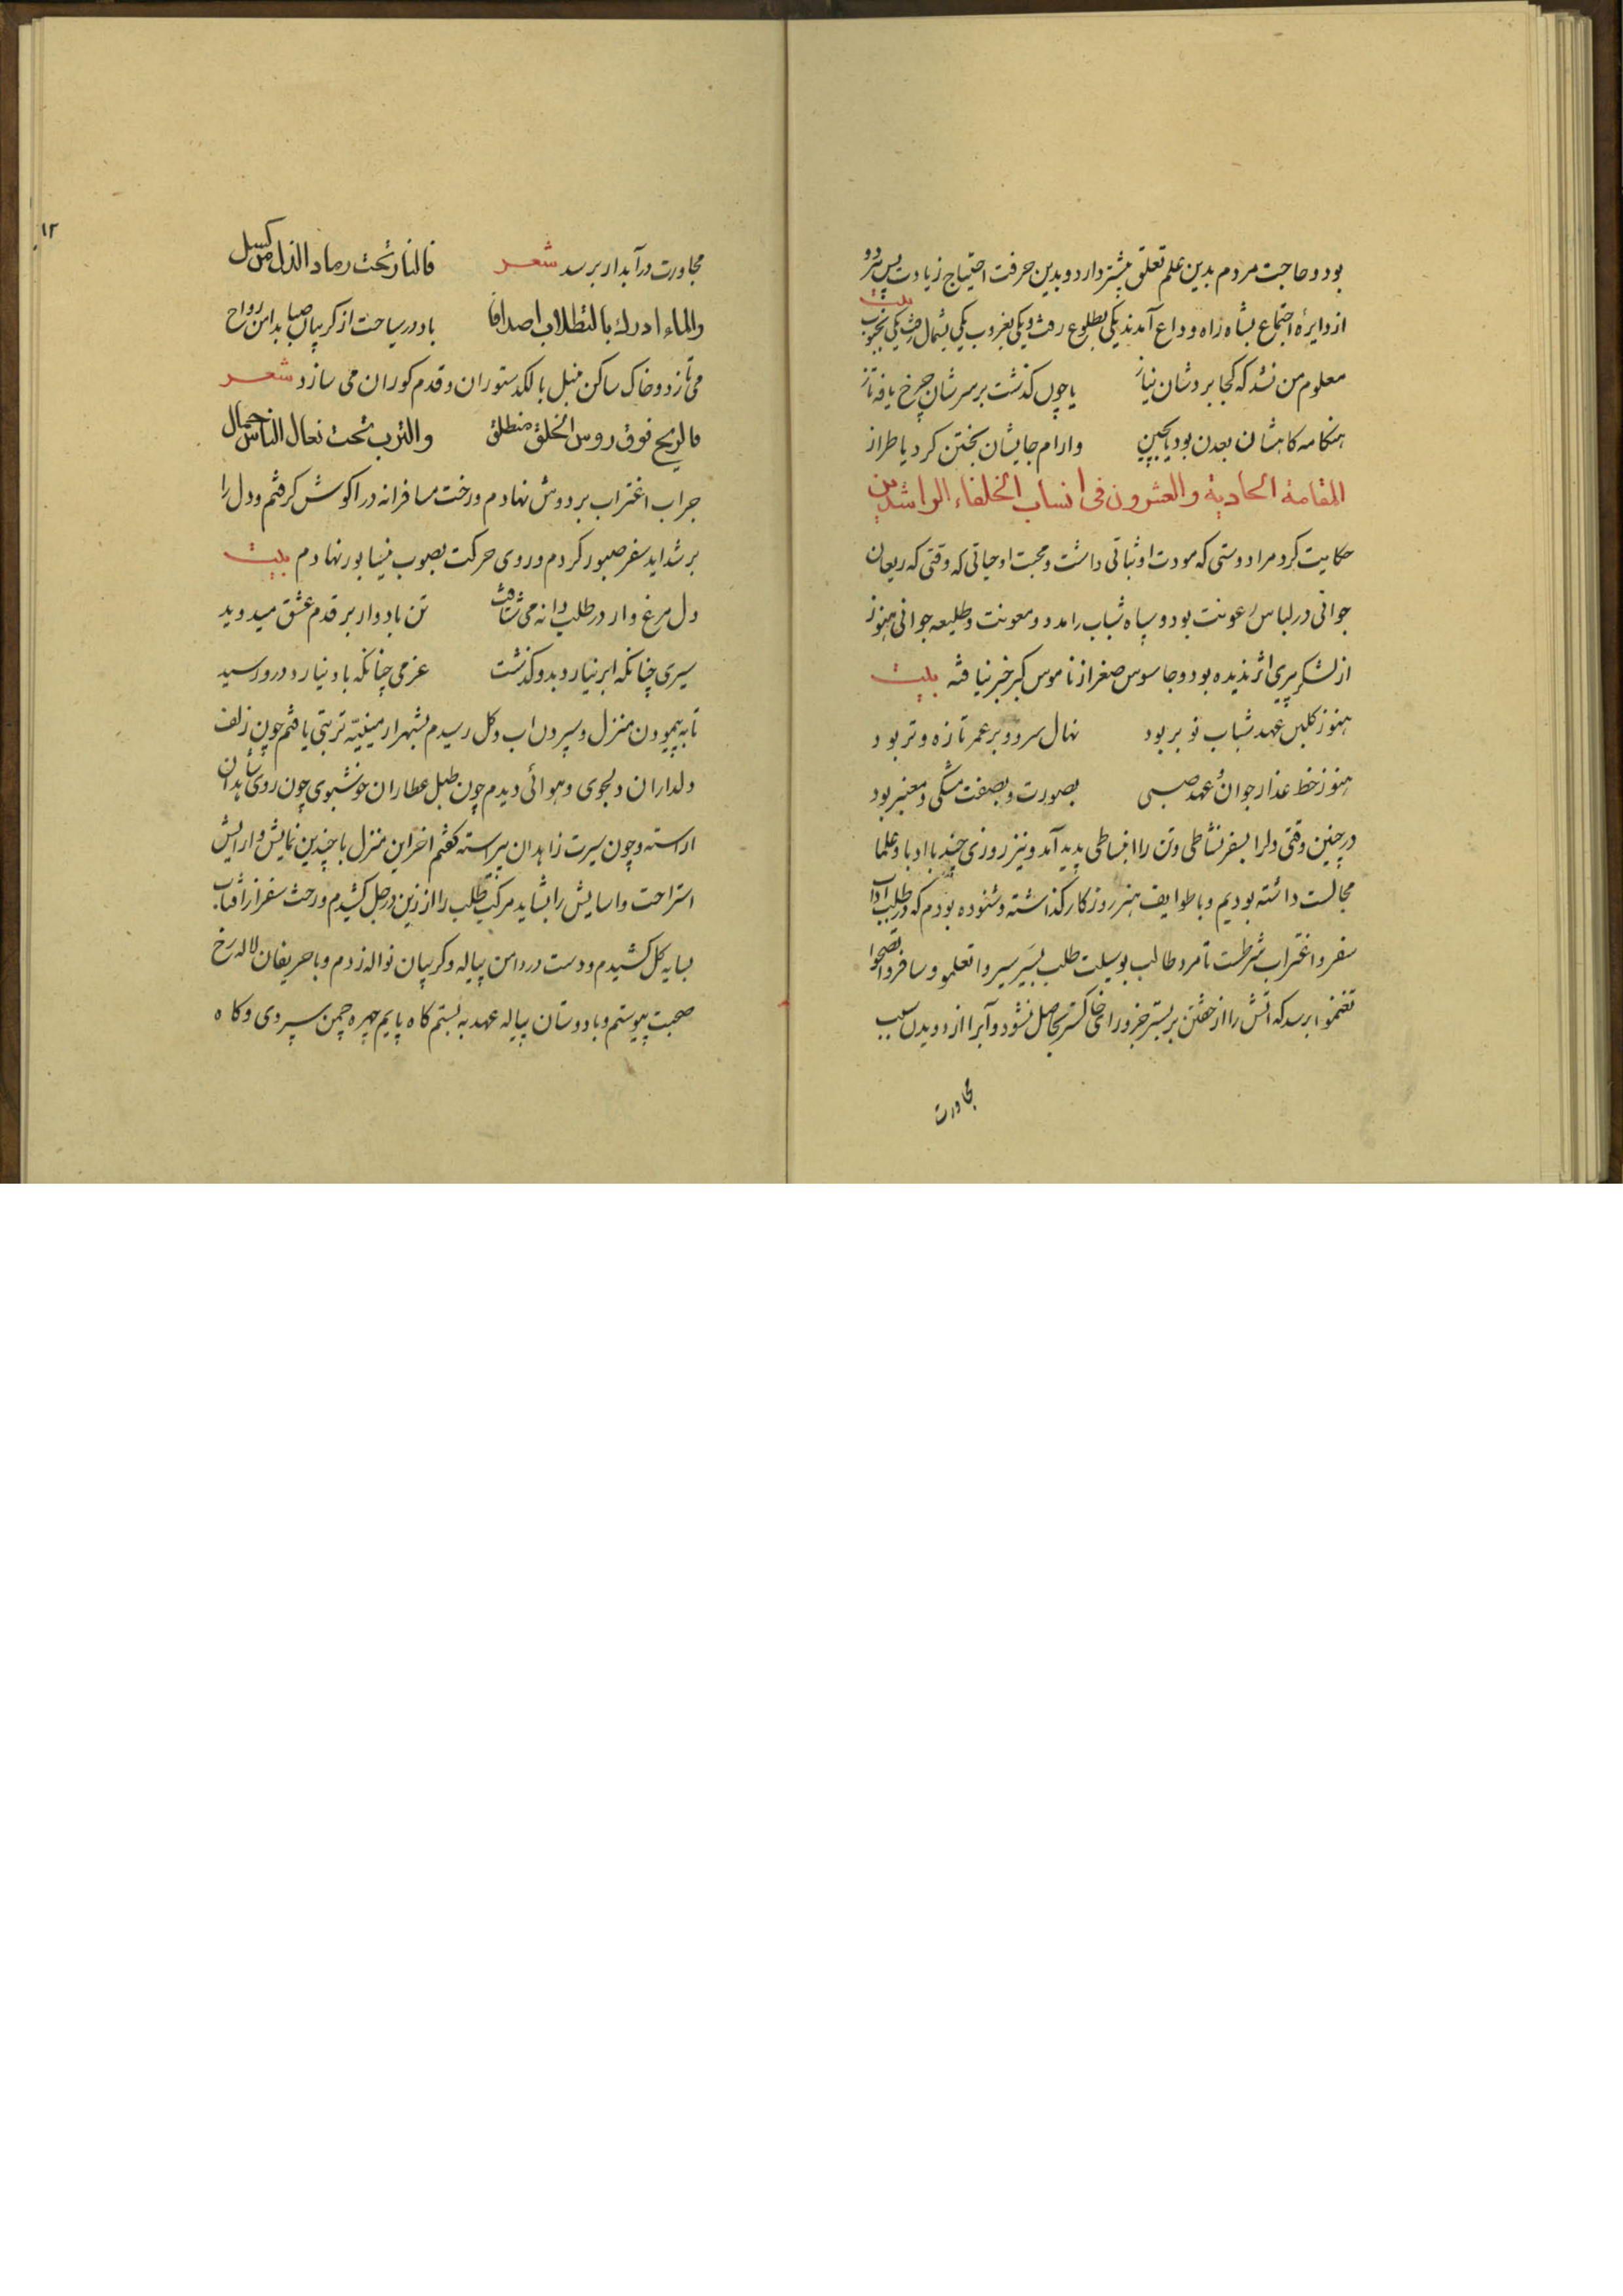 بود و حاجت مردم بدین علم تعلق بیشتر دارد و بدین حرفت احتیاج زیادت پس هر دو
بیت
از دایرهٔ اجتماع بشاه راه وداع آمدند یکی بطلوع رفت و یکی بغروب یکی بشمال رفت یکی بجنوب
معلوم من نشد که کجا بردشان نیاز یا چون گذشت بر سرشان چرخ یافه تاز
هنکامه کاهشان بعدن بود یا بچین وارام جایشان بختن کرد یا طراز
المقامة الحادیة والعشرون فی انساب الخلفاء الراشدین
حکایت کرد مرا دوستی که مودت او ثباتی داشت و محبت او حیاتی که وقتی که ریعان
جوانی در لباس رعونت بود و سپاه شباب را مدد و معونت و طلیعه جوانی هنوز
از لشکر پیری اثر ندیده بود و جاسوس صغر از ناموس کبر خبر نیافته بیت
هنوز کلبن عهد شباب نو بر بود نهال سرو و بر عمر تازه و تر بود
هنوز خط عذار جوان عهد صبی بصورت و بصفت مشکی و معنبر بود
در چنین وقتی دلرا بسفر نشاطی و تن را انبساطی پدید آمد و نیز روزی چند با ادبا و علما
مجالست داشته بودیم و با طوایف هنر روزکار کذاشته و شنوده بودم که در طلب آداب
سفر و اغتراب شرطست تا مرد طالب بوسیلت طلب بسیر سیروا تعلمو و سافروا تصحوا
تغنموا برسد که اتش را از خفتن بر بستر جز ورای خاکستر حاصل نشود و آبرا از دویدن سبب
مجاورت
۱۲
مجاورت در آبدار برسد شعر فالنار تحت رماد الذل من کسل
والماء ادرك بالتطلاب اصدافا باد در سیاحت از کریبان صبا بدامن رواح
می تازد و خاک ساکن منبل با لکد ستوران و قدم کوران می سازد شعر
فالریح فوق روس الخلق منطلق والترب تحت نعال الناس حمال
جراب اغتراب بر دوش نهادم و رخت مسافرانه در اکوش کرفتم و دل را
بر شداید سفر صبور کردم و روی حرکت بصوب نیسابور نهادم بیت
دل مرغ وار در طلب دانه می شتافت تن باد وار بر قدم عشق میدوید
سیری چنانکه ابر نیارد بدو کذشت عزمی چنانکه باد نیارد درو رسید
تا به پیمودن منزل و سپردن اب و کل رسیدم بشهر ارمینیّه تربتی یافتم چون زلف
دلداران دلجوی و هوائی دیدم چون طبل عطاران خوشبوی چون روی شاهدان
اراسته و چون سیرت زاهدان پیراسته کفتم اخر این منزل با چندین نمایش و ارایش
استراحت و اسایش را بشاید مرکب طلب را از زین در جل کشیدم و رخت سفر از افتاب
بسایه کل کشیدم و دست در دامن پیاله و کریبان نواله زدم و با حریفان لاله رخ
صحبت پیوستم و با دوستان پیاله عهد به بستم کاه پایم چهره چمن سپردی و کاه